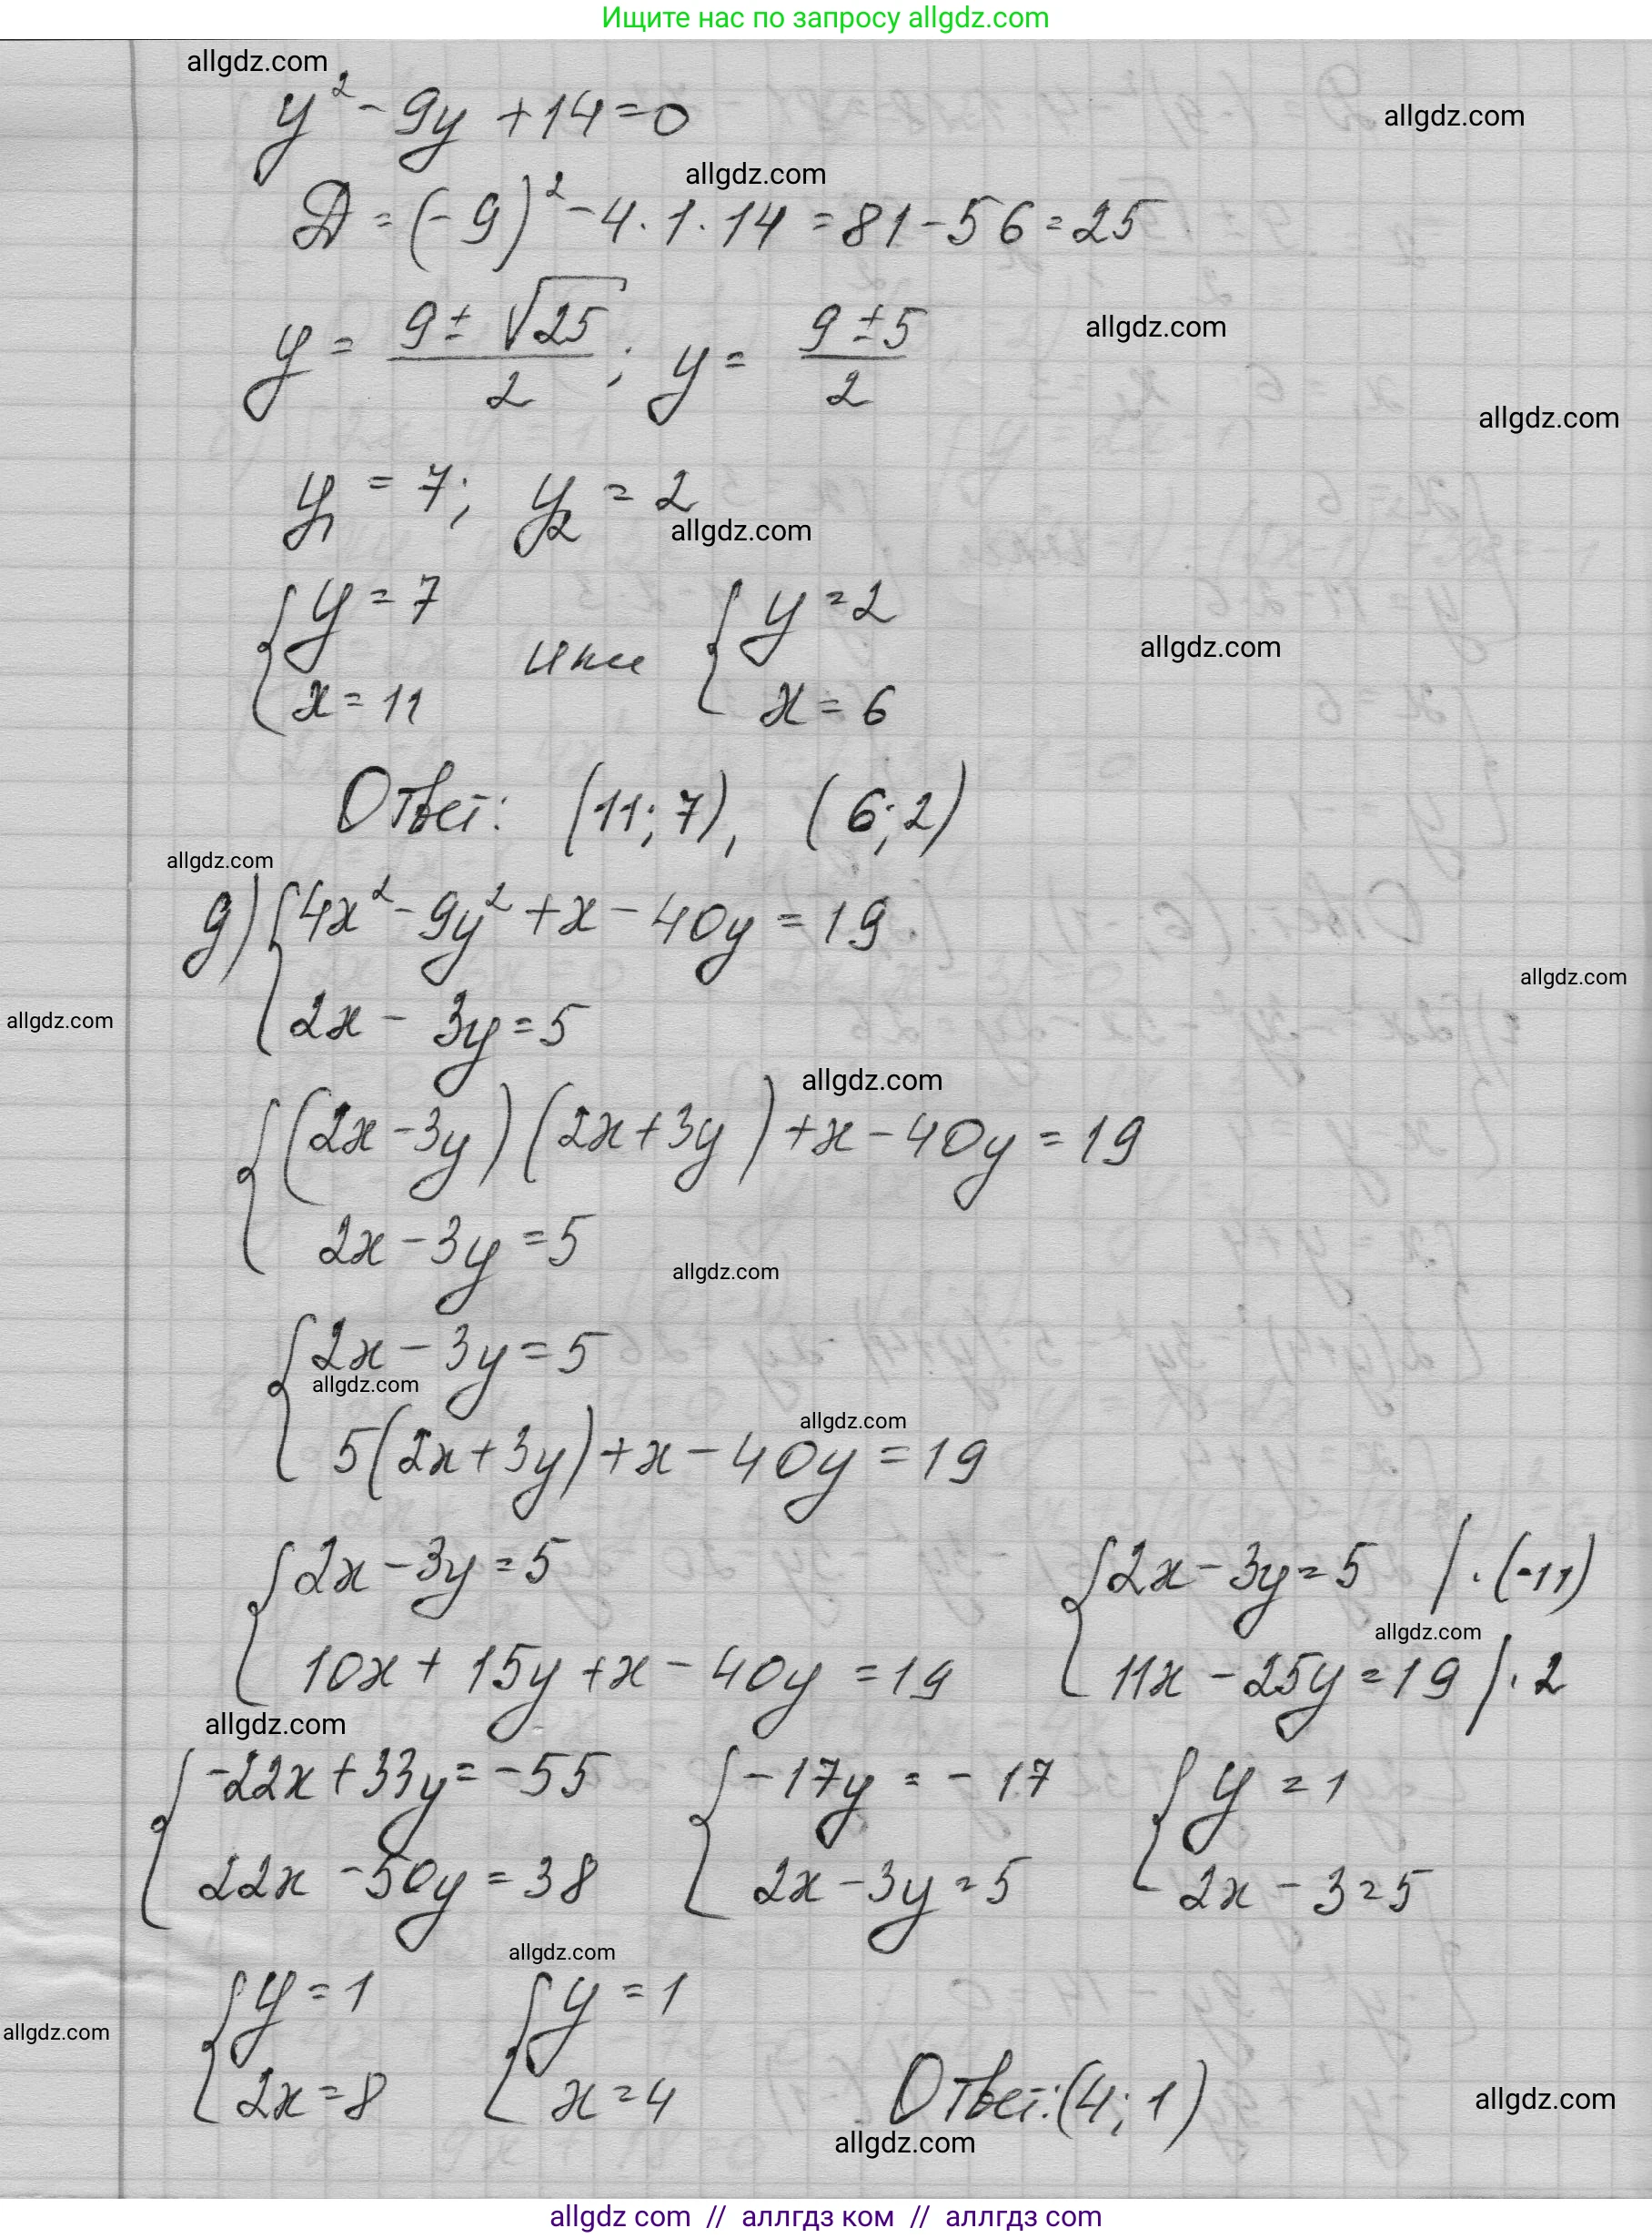 Ищите нас по запросу allgdz.com
allgdz.com
y² - 9y + 14 = 0
allgdz.com
allgdz.com
D = (-9)² - 4 · 1 · 14 = 81 - 56 = 25
y = (9 ± √25)/2 ; y = (9 ± 5)/2
allgdz.com
allgdz.com
y₁ = 7; y₂ = 2
allgdz.com
{ y = 7 или { y = 2
x = 11 x = 6
allgdz.com
Ответ: (11; 7), (6; 2)
allgdz.com
д) { 4x² - 9y² + x - 40y = 19
allgdz.com
2x - 3y = 5
allgdz.com
allgdz.com
{ (2x - 3y)(2x + 3y) + x - 40y = 19
2x - 3y = 5
allgdz.com
{ 2x - 3y = 5
allgdz.com
allgdz.com
5(2x + 3y) + x - 40y = 19
{ 2x - 3y = 5 { 2x - 3y = 5 | · (-11)
allgdz.com
10x + 15y + x - 40y = 19 11x - 25y = 19 | · 2
allgdz.com
{ -22x + 33y = -55 { -17y = -17 { y = 1
22x - 50y = 38 2x - 3y = 5 2x - 3 = 5
allgdz.com
{ y = 1 { y = 1
allgdz.com
2x = 8 x = 4 Ответ: (4; 1)
allgdz.com
allgdz.com
allgdz com // аллгдз ком // аллгдз com